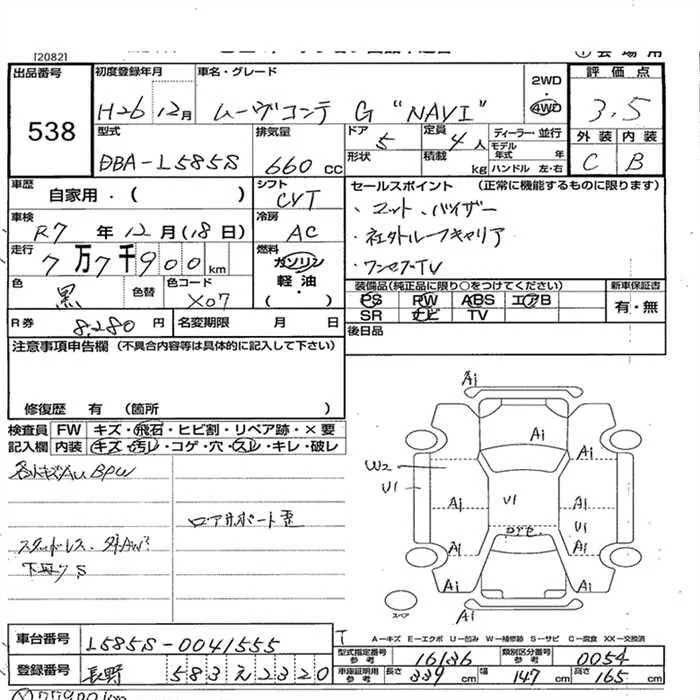 [2082]
出品番号 初度登録年月 車名・グレード 2WD 評価点
538 H26 12月 ムーヴコンテ G "NAVI" 4WD 3.5
型式 排気量 ドア 5 定員 4人 ディーラー・並行 外装 内装
DBA-L585S 660 cc 形状 積載 kg モデル年式 年 ハンドル 左・右 C B
車歴 自家用・( ) シフト CVT セールスポイント (正常に機能するものに限ります)
車検 R7年 12月(18日) 冷房 AC ・マット、バイザー
走行 7万7千900km 燃料 ガソリン ・社外ルーフキャリア
軽油・( ) ・ワンセグTV
色 黒 色替 色コード X07 装備品(純正品に限り○をつけてください) 新車保証書
PS PW ABS エアB 有・無
R券 8,280円 名変期限 月 日 SR ナビ TV
注意事項申告欄 (不具合内容等は具体的に記入して下さい) 後日品
修復歴 有 (箇所 )
検査員 FW キズ・飛石・ヒビ割・リペア跡・×要
記入欄 内装 キズ・汚レ・コゲ・穴・スレ・キレ・破レ
ロアサポート歪
スタッドレス、
下廻りS
A1
A1
W2
U1
A1
U1
A1
U1
A1
A1
A1
A1
A1
スペア
車台番号 L585S-0041555
T A-キズ E-エクボ U-凹み W-補修跡 S-サビ C-腐食 XX-交換済
型式指定番号 参考 16136 類別区分番号 参考 0054
登録番号 長野 583 え 2320
車庫証明用 参考 長さ 339cm 幅 147cm 高さ 165cm